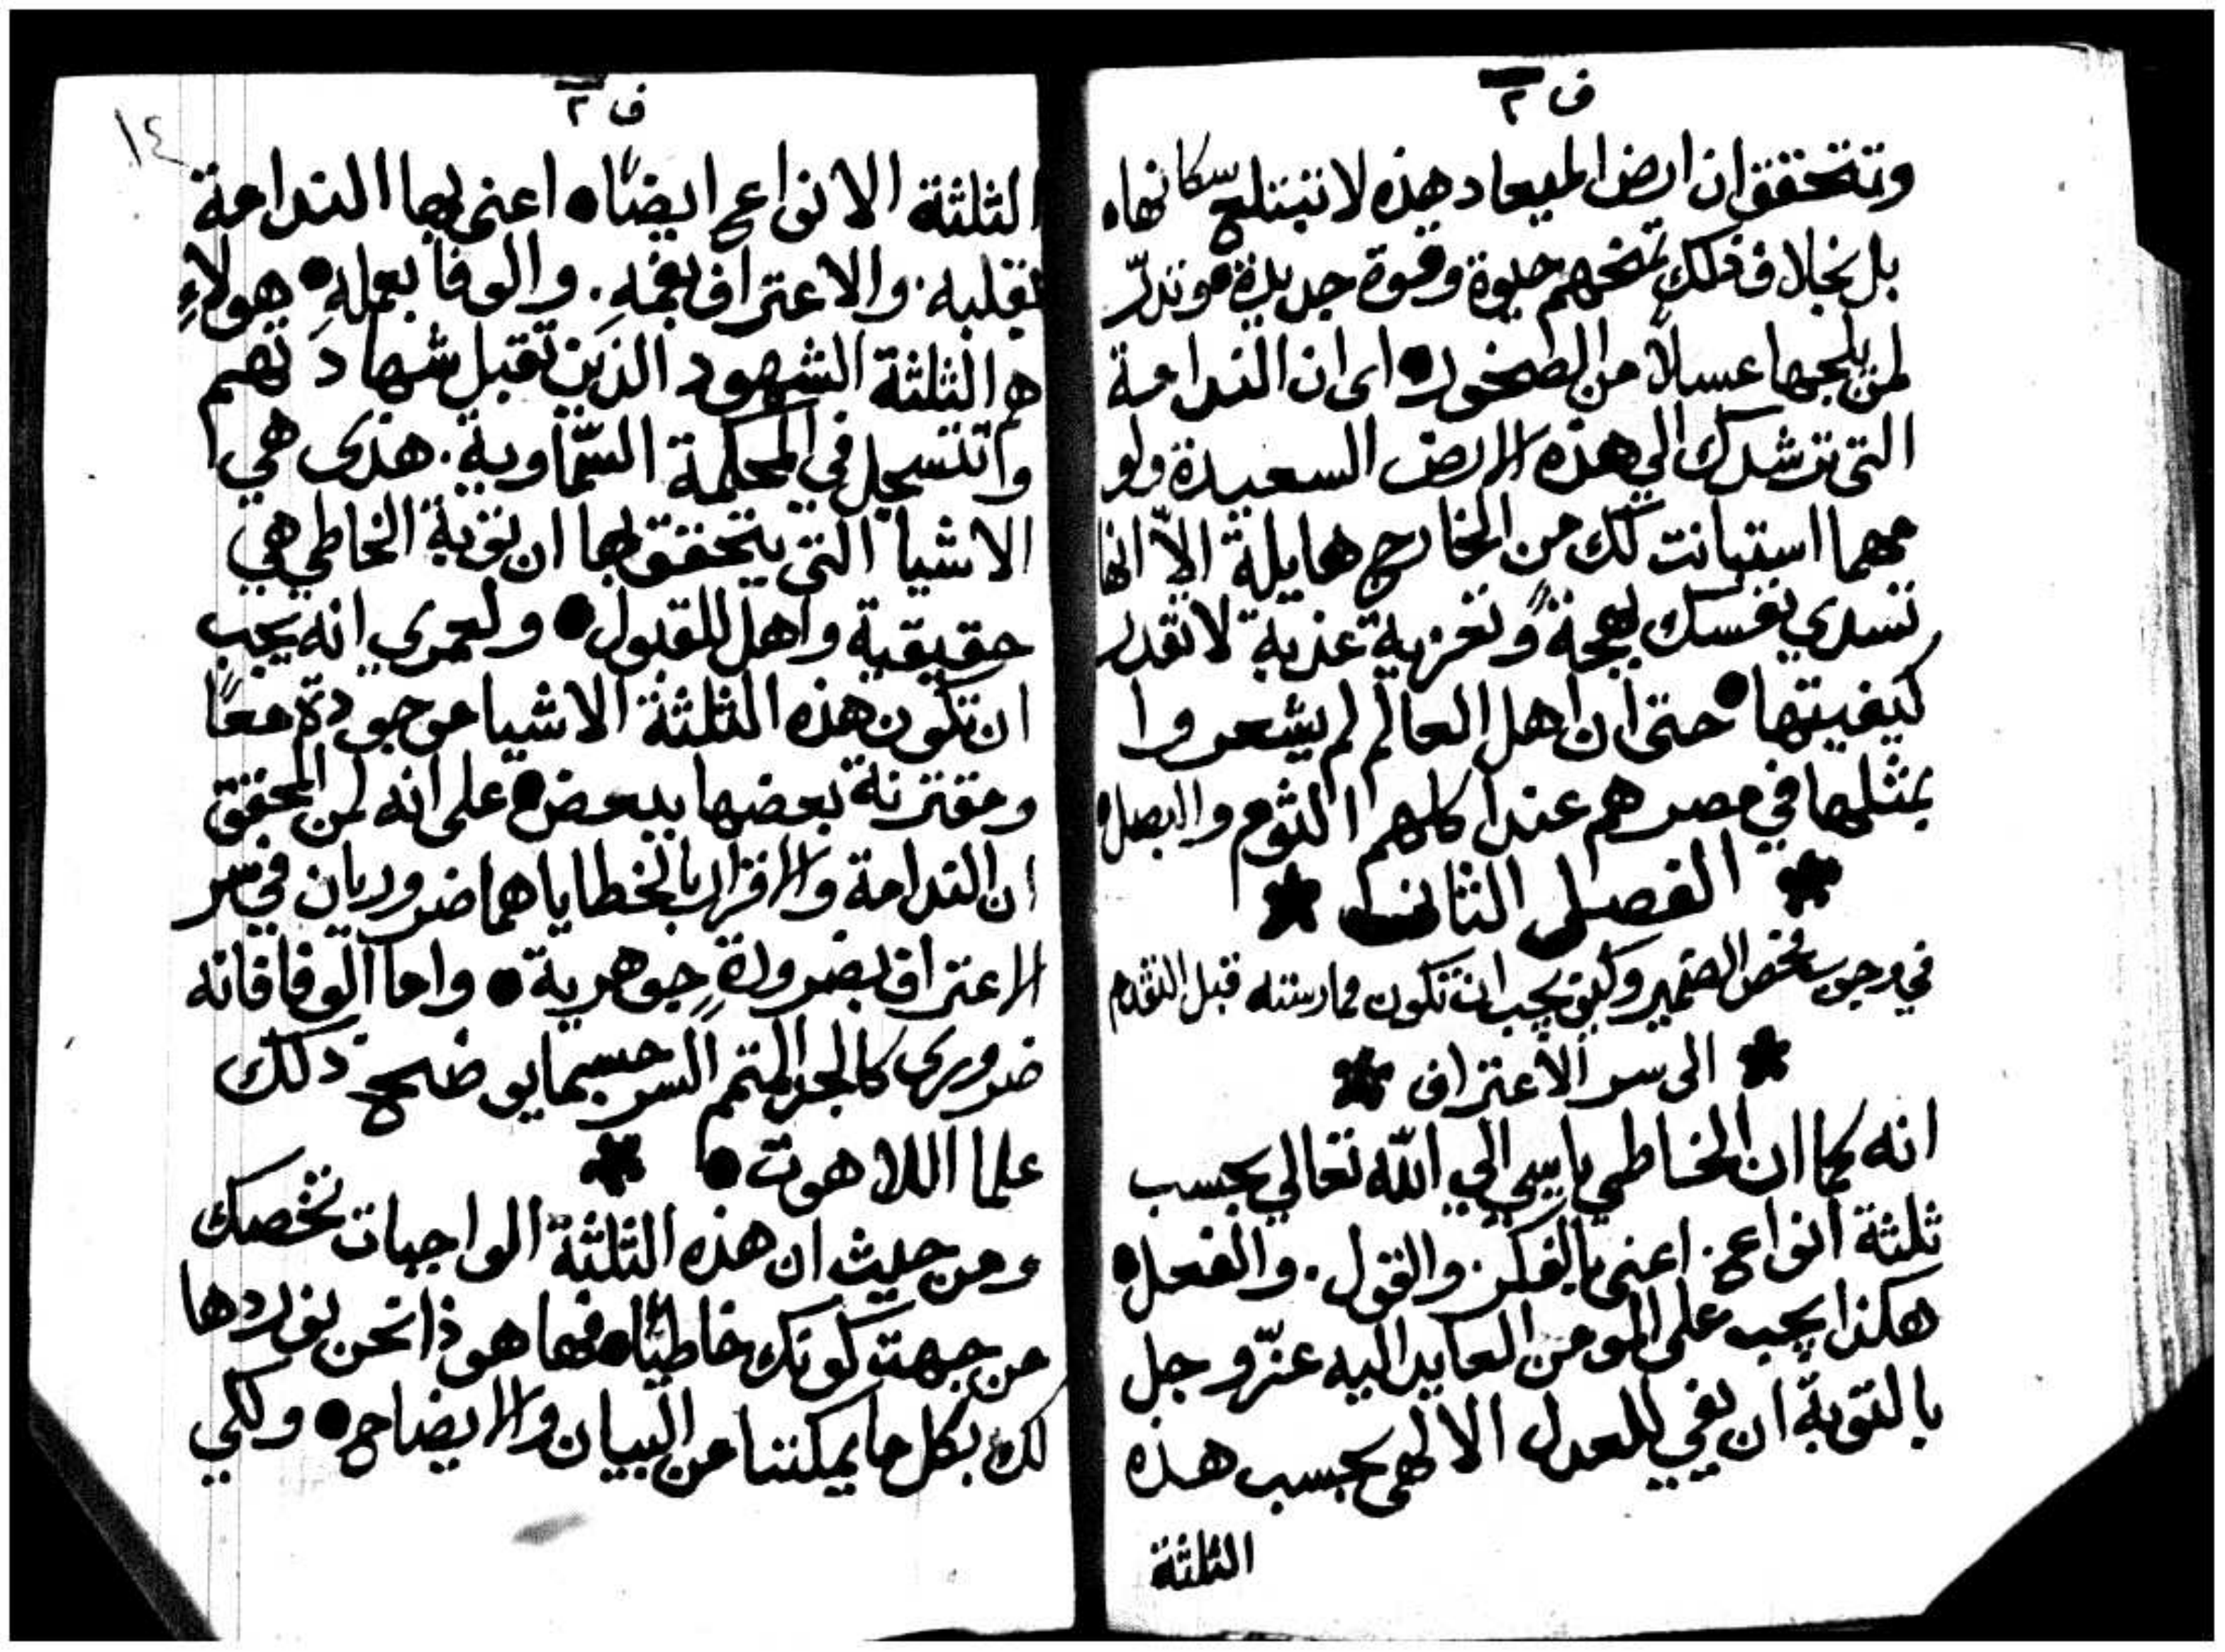 ف ٢
وتتحقق ان ارض الميعاد هذه لا تبتلع سكانها.
بل بخلاف ذلك تمنحهم حيوة وقوة جديدة. وتدرّ
لمن يلجها عسلاً من الصخور. اى ان الندامة
التى ترشدك الي هذه الارض السعيدة ولو
مهما استبانت لك من الخارج هايلة الاّ انها
تسدي نفسك بهجةً وتعزية عذبة لا تقدر
كيفيتها. حتى ان اهل العالم لم يشعروا
بمثلها في مصرهم عند اكلهم الثوم والبصل.
* الفصل الثاني *
في وجوب فحص الضمير وكيف يجب ان تكون ممارسته قبل التقدم
* الى سر الاعتراف *
انه كما ان الخاطي يا بيي الي اللّه تعالي بحسب
ثلثة انواع. اعنى بالفكر. والقول. والفعل.
هكذا يجب على المومن العايد اليه عزّ وجل
بالتوبة ان يفي للعدل الالهى بحسب هذه
الثلثة
ف ٢
١٤
الثلثة الانواع ايضًا. اعنى بها الندامة
بقلبه. والاعتراف بفمهِ. والوفا بعملهِ. هولاءِ
هم الثلثة الشهود الذين تقبل شهادتهم
وتتسجل في المحكمة السّماوية. هذى هي
الاشيا التى يتحقق بها ان توبة الخاطي هي
حقيقية واهل للقبول. ولعمري انه يجب
ان تكون هذه الثلثة الاشيا موجودة معًا
ومقترنة بعضها ببعض. على انه لمن المحقق
ان الندامة والاقرار بالخطايا هما ضروريان في سر
الاعتراف بضرورةٍ جوهرية. واما الوفا فانه
ضرورى كالجز المتمم السر حسبما يوضح ذلك
علما اللاهوت. *
ومن حيث ان هذه الثلثة الواجبات تخصك
من جهت كونك خاطيًا. فها هوذا نحن نوردها
لك بكل ما يمكننا من البيان والايضاح. ولكي